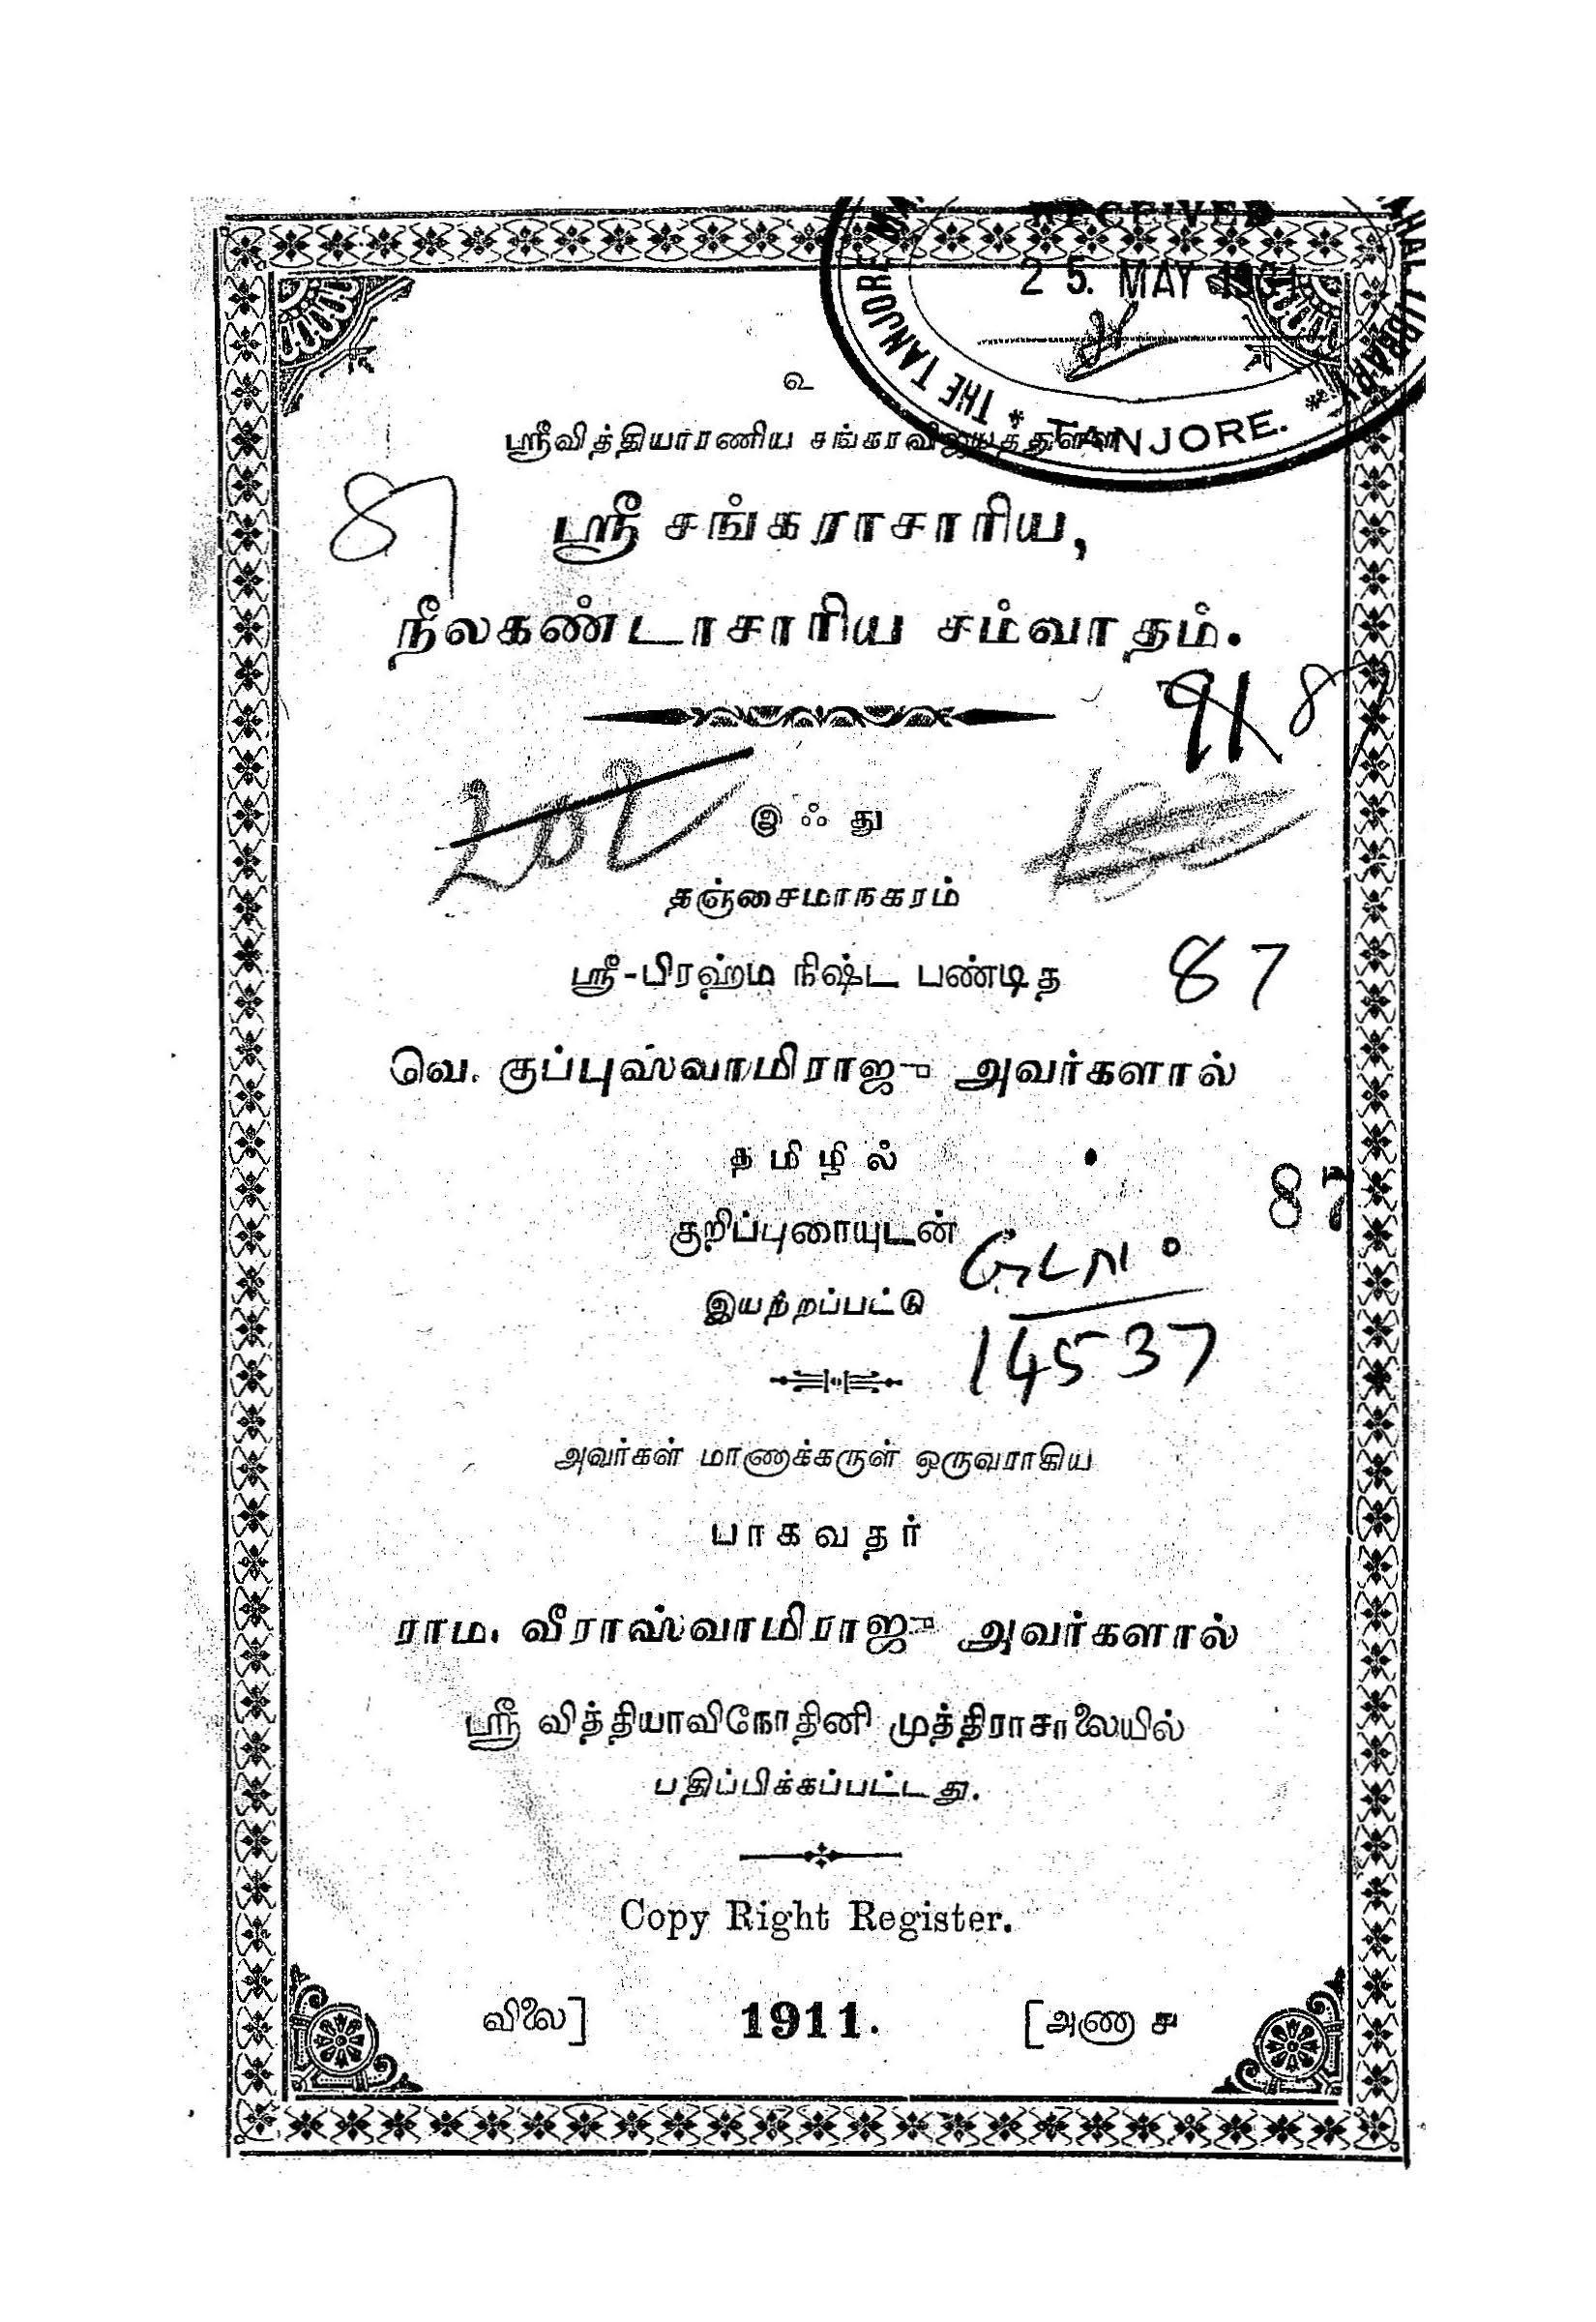 RECEIVED
25. MAY
THE TANJORE
LIBRARY
* TANJORE. *
உ
ஸ்ரீவித்தியாரணிய சங்கரவிஜயத்துள்ள
87
ஸ்ரீ சங்கராசாரிய,
நீலகண்டாசாரிய சம்வாதம்.
87
இஃது
தஞ்சைமாநகரம்
ஸ்ரீ-பிரஹ்ம நிஷ்ட பண்டித
87
வெ. குப்புஸ்வாமிராஜு அவர்களால்
தமிழில்
87
குறிப்புரையுடன்
இயற்றப்பட்டு
14537
அவர்கள் மாணாக்கருள் ஒருவராகிய
பாகவதர்
ராம. வீராஸ்வாமிராஜு அவர்களால்
ஸ்ரீ வித்தியாவிநோதினி முத்திராசாலையில்
பதிப்பிக்கப்பட்டது.
Copy Right Register.
விலை] 1911. [அணா ௪